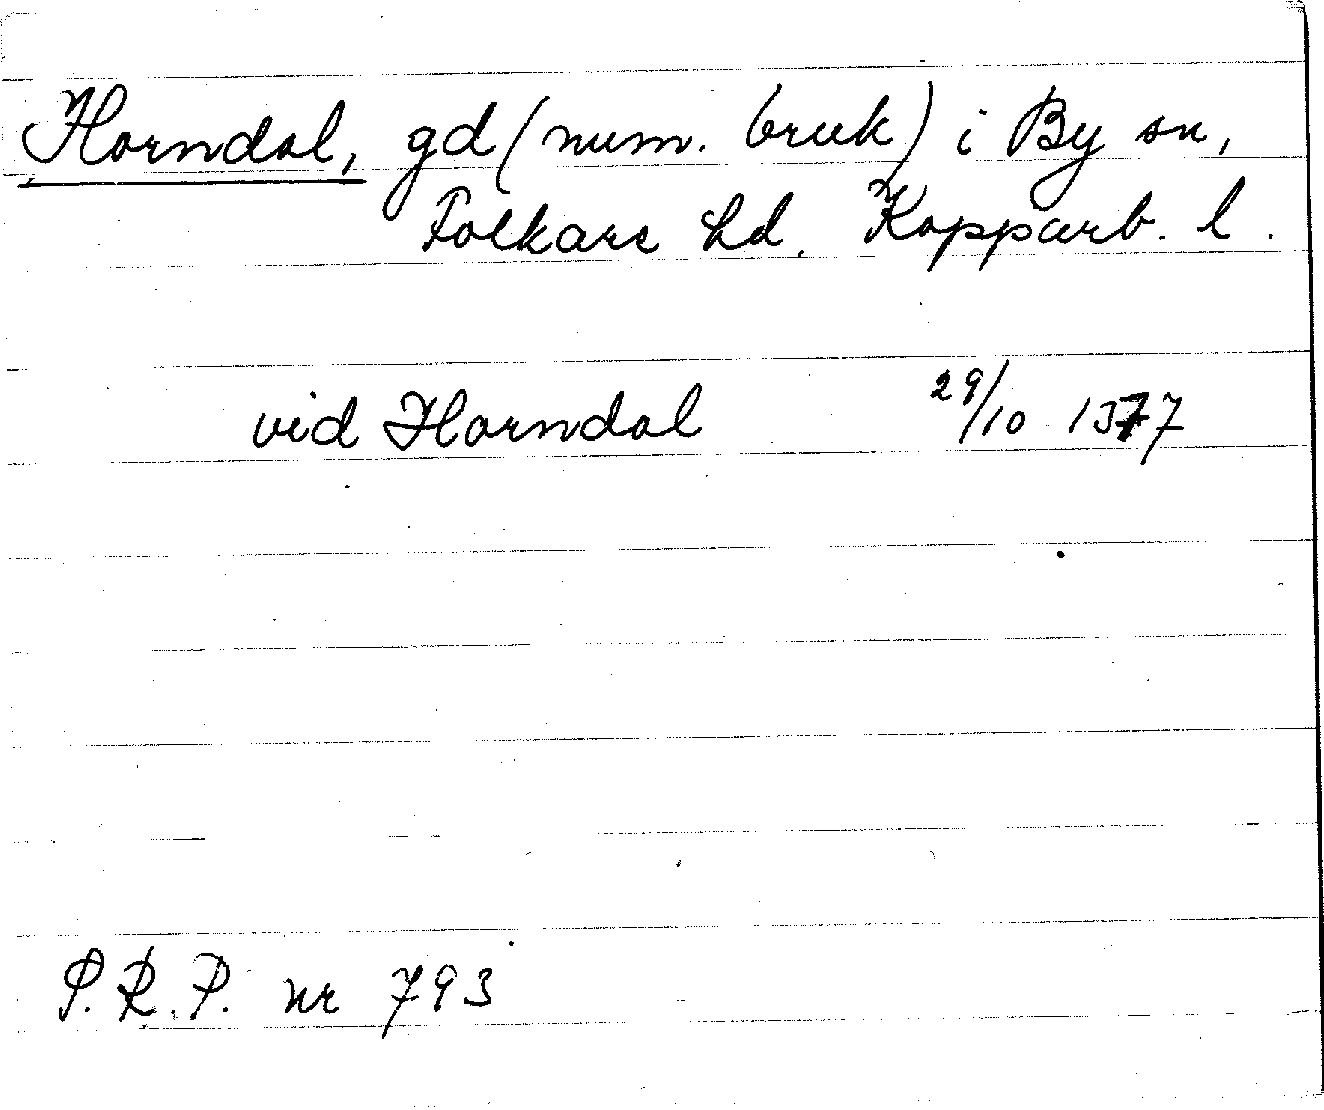 Horndal, gd (num. bruk) i By sn,
Folkare hd. Kopparb. l.
vid Horndal 29/10 1377
P.R.P. nr 793